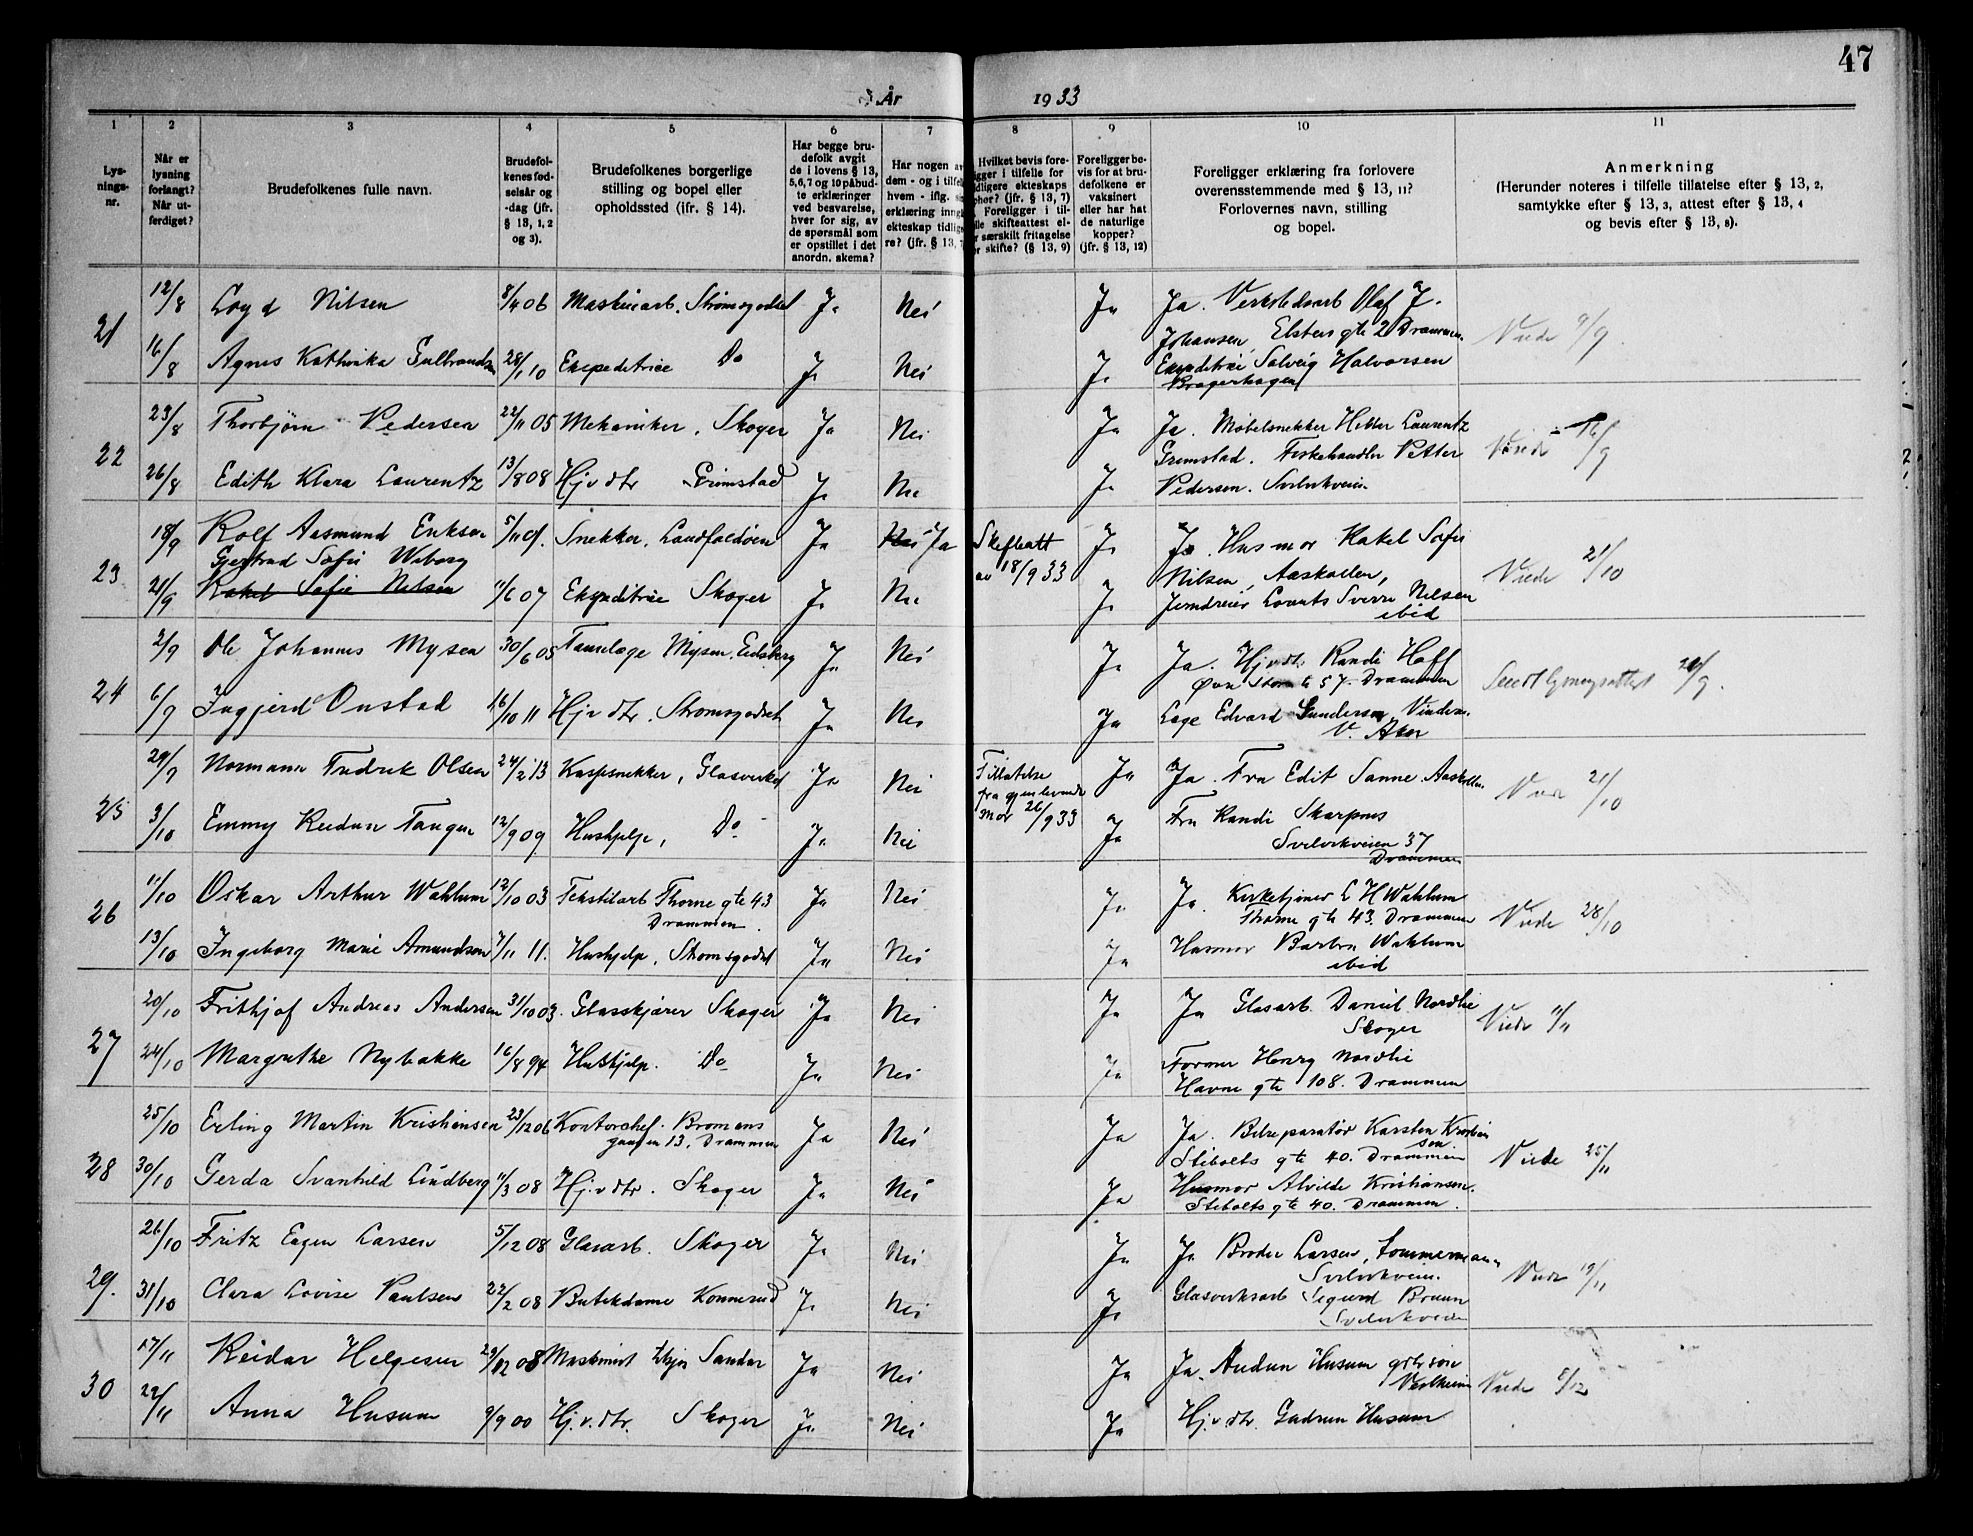 47
År 1933
1 2 3 4 5 6 7 8 9 10 11
Lysningsnr.
Når er lysning forlangt? Når utferdiget?
Brudefolkenes fulle navn.
Brudefolkenes fødselsår og -dag (jfr. § 13, 1, 2 og 3).
Brudefolkenes borgerlige stilling og bopel eller opholdssted (ifr. § 14).
Har begge brudefolk avgit de i lovens § 13, 5, 6, 7 og 10 påbudte erklæringer ved besvarelse, hver for sig, av de spørsmål som er opstillet i det anordn. skema?
Har nogen av dem - og i tilfelle hvem - iflg. erklæring inngått ekteskap tidligere? (jfr. § 13, 7
Hvilket bevis foreligger i tilfelle for tidligere ekteskaps ophør? (jfr. § 13, 7) Foreligger i tilfelle skifteattest eller særskilt fritagelse for skifte? (§ 13, 9)
Foreligger bevis for at brudefolkene er vaksinert eller har hat de naturlige kopper? (jfr. § 13, 12)
Foreligger erklæring fra forlovere overensstemmende med § 13, 11? Forlovernes navn, stilling og bopel.
Anmerkning
(Herunder noteres i tilfelle tillatelse efter § 13, 2, samtykke efter § 13, 3, attest efter § 13, 4 og bevis efter § 13, 8).
21
12/8 Loyd Nilsen 8/4 06 Maskinarb. Strømsgodset Ja Nei Ja Ja. Verkstedsarb Olaf J.
Johansen, Elsters gte 2 Drammen. Viede 9/9
16/8 Agnes Kathinka Gulbrandsen 28/1 10 Ekspeditrice Do Ja Nei Ja Ekspeditrise Solveig Halvorsen
Bragerhagen
22
23/8 Thorbjørn Pedersen 22/11 05 Mekaniker, Skoger Ja Nei Ja Ja. Møbelsnekker Laurentz
Grimstad. Fiskehandler Petter Viede 16/9
26/8 Edith Klara Laurentz 13/8 08 Hjv dtr Grimstad Ja Nei Ja Pedersen. Svelvikveien
23
18/9 Rolf Aasmund Eriksen 5/11 Snekker, Landfaldøen Ja Nei Ja Skifteatt av 18/9 33 Ja Ja. Husmor Rakel Sofie
Gjertrud Sofie Wiborg
Nilsen, Aaskollen, Viede 21/10
21/9 Rakel Sofie Nilsen 11/6 07 Ekspeditrice Skoger Ja Nei Ja Jerndreier Sverre Nilsen
ibid
24
2/9 Ole Johannes Mysen 30/6 05 Tannlæge Mysen, Eidsberg Ja Nei Ja Ja. Hjv dtr Randi Hoff
Øvre Storgt 57. Drammen
6/9 Ingjerd Onstad 16/10 11 Hjv dtr. Strømsgodset Ja Nei Ja Læge Edvard Gundersen Vinderen
V. Aker
25
29/9 Normann Fredrik Olsen 24/2 13 Kassesnekker, Glasverket Ja Nei Tillatelse fra gjenlevende mor 26/9 33 Ja Ja. Fru Edit Sanne. Aaskollen Viede 21/10
3/10 Emmy Reidun Tangen 12/9 09 Hushjelp, Do Ja Nei Ja Fru Randi Skarpnes
Svelvikveien 37
Drammen
26
11/10 Oskar Arthur Wahlum 12/10 03 Tekstilarb Thorne gte 43 Ja Nei Ja Ja. Kirketjener L H Wahlum
Drammen. Thorne gte 43. Drammen Viede 28/10
13/10 Ingeborg Marie Amundsen 7/11 11. Hushjelp, Strømsgodset Ja Nei Ja Husmor Barbra Wahlum
ibid
27
20/10 Frithjof Andreas Andersen 31/10 03. Glasskjærer Skoger Ja Nei Ja Ja Glasarb. Daniel Nordlie
Skoger Viede 11/11
24/10 Margrethe Nybakke 16/8 94 Hushjelp. Do Ja Nei Ja Former Henry Nordlie
Havne gte 108. Drammen
28
25/10 Erling Martin Kristiansen 23/12 06 Kontorchef. Bromans Ja Nei Ja Ja. Bilreparatør Karsten Kristiansen
gangen 13, Drammen Stibolts gte 40. Drammen Viede 25/11
30/10 Gerda Svanhild Lindberg 11/3 08 Hj.v dtr. Skoger Ja Nei Ja Husmor Alvilde Kristiansen.
Stibolts gte 40. Drammen.
29.
26/10 Fritz Eugen Larsen 5/12 08 Glasarb. Skoger Ja Nei Ja Ja Broder Larsen, Tømmermann
Svelvikveien. Viede 19/11
31/10 Clara Lovise Paulsen 22/2 08 Butikdame Konnerud Ja Nei Ja Glasverksarb Sigurd Bruun
Svelvikveien
30
17/11 Reidar Helgesen 29/12 08 Maskinist Sandar Ja Nei Ja Ja. Audun Husum
Viede 8/12
22/11 Anna Husum 9/9 00 Hj.v.dtr. Skoger Ja Nei Ja Hj.v dtr. Gudrun Husum